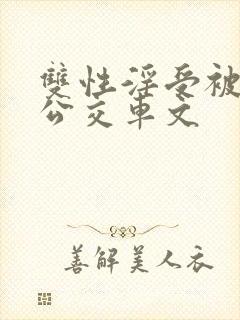 雙性淫受被
公交車文
善解美人衣